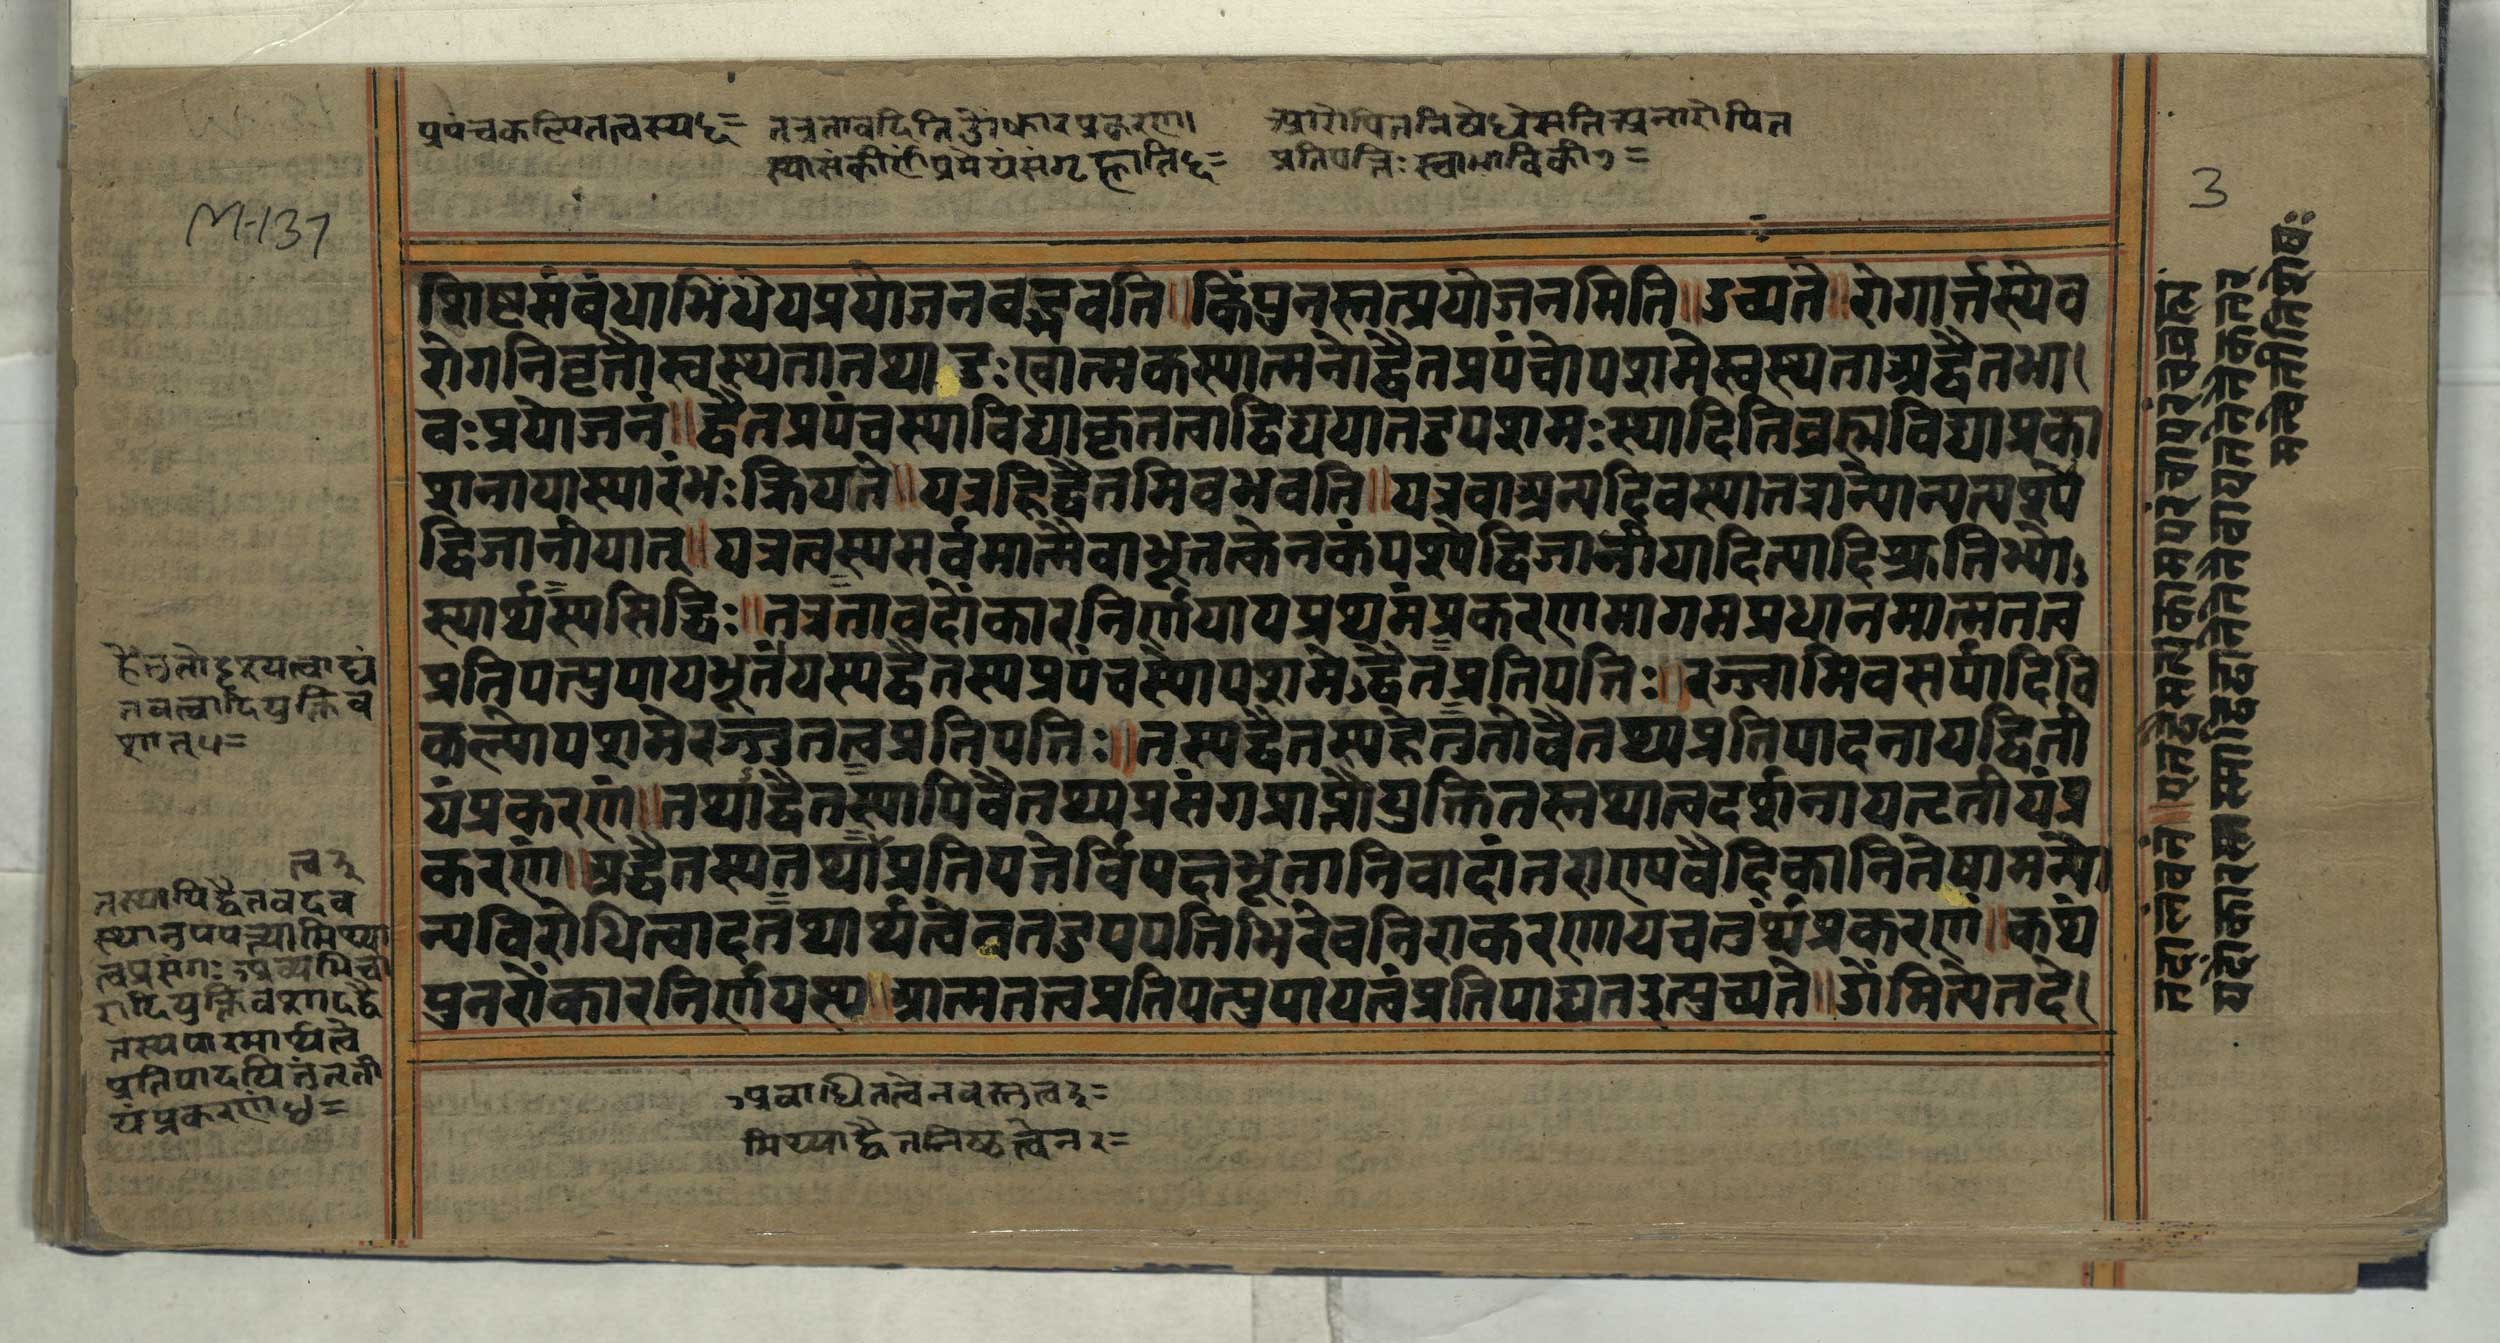 प्रपंचकल्पितत्वस्य ६=
तत्रतावदितिॐकारप्रकरण।
स्यासंकीर्णंप्रमेयंसंगृह्णाति ६=
आरोपितनिषेधेसतिअनारोपित
प्रतिपत्तिः स्वाभाविकी १=
M-137
3
शिष्टसंबंधाभिधेयप्रयोजनवद्भवति॥किंपुनस्तत्प्रयोजनमिति॥उच्यते॥रोगार्त्तस्येव
रोगनिवृत्तौस्वस्थतातथादुःखात्मकस्यात्मनोद्वैतप्रपंचोपशमेस्वस्थताअद्वैतभा।
वःप्रयोजनं॥द्वैतप्रपंचस्याविद्याकृतत्वाद्विद्ययातदुपशमःस्यादितिब्रह्मविद्याप्रका
शनायास्यारंभःक्रियते॥यत्रहिद्वैतमिवभवति॥यत्रवाअन्यदिवस्यातत्रान्योन्यत्पश्ये
द्विजानीयात्॥यत्रत्वस्यसर्वमात्मैवाभूतत्केनकंपश्येद्विजानीयादित्यादिश्रुतिभ्यो
स्यार्थस्यसिद्धिः॥तत्रतावदोंकारनिर्णयायप्रथमंप्रकरणमागमप्रधानमात्मतत्व
प्रतिपत्त्युपायभूतंयस्यद्वैतस्यप्रपंचस्योपशमेऽद्वैतप्रतिपत्तिः॥रज्ज्वामिवसर्पादिवि
कल्पोपशमेरज्जुतत्वप्रतिपत्तिः॥तस्यद्वैतस्यहेतुतोवैतथ्यप्रतिपादनायद्विती
यंप्रकरणं॥तथाद्वैतस्यापिवैतथ्यप्रसंगप्राप्तौयुक्तितस्तथात्वदर्शनायतृतीयंप्र
करणं॥अद्वैतस्यतथाप्रतिपत्तेर्विपक्षभूतानिवादांतराण्यवैदिकानितेषामन्यो
न्यविरोधित्वादतथार्थत्वेनतदुपपत्तिभिरेवनिराकरणायचतुर्थंप्रकरणं॥कथं
पुनरोंकारनिर्णयस्य॥आत्मतत्वप्रतिपत्त्युपायत्वंप्रतिपाद्यतइत्युच्यते॥ॐमित्येतदे।
हेतुतोदृश्यत्वाद्यं
तवत्वादियुक्तिव
शात् ५=
तस्यापिद्वैतवदव
स्थानुपपत्त्यामिथ्या
त्वप्रसंगःअव्यभिचा
रादियुक्तिवशादद्वै
तस्यपारमार्थ्यत्वं
प्रतिपादयितुंतृती
यंप्रकरणं ४=
अबाधितत्वेनवस्तुत्व २=
मिथ्याद्वैतनिष्ठत्वेन २=
तदालंबनं॥एतद्वैसत्यकामपरंचापरंचब्रह्म
यदोंकारस्तस्माद्विद्वानेतेनैवायतनेनैकतर
मन्वेतीतिशेषः